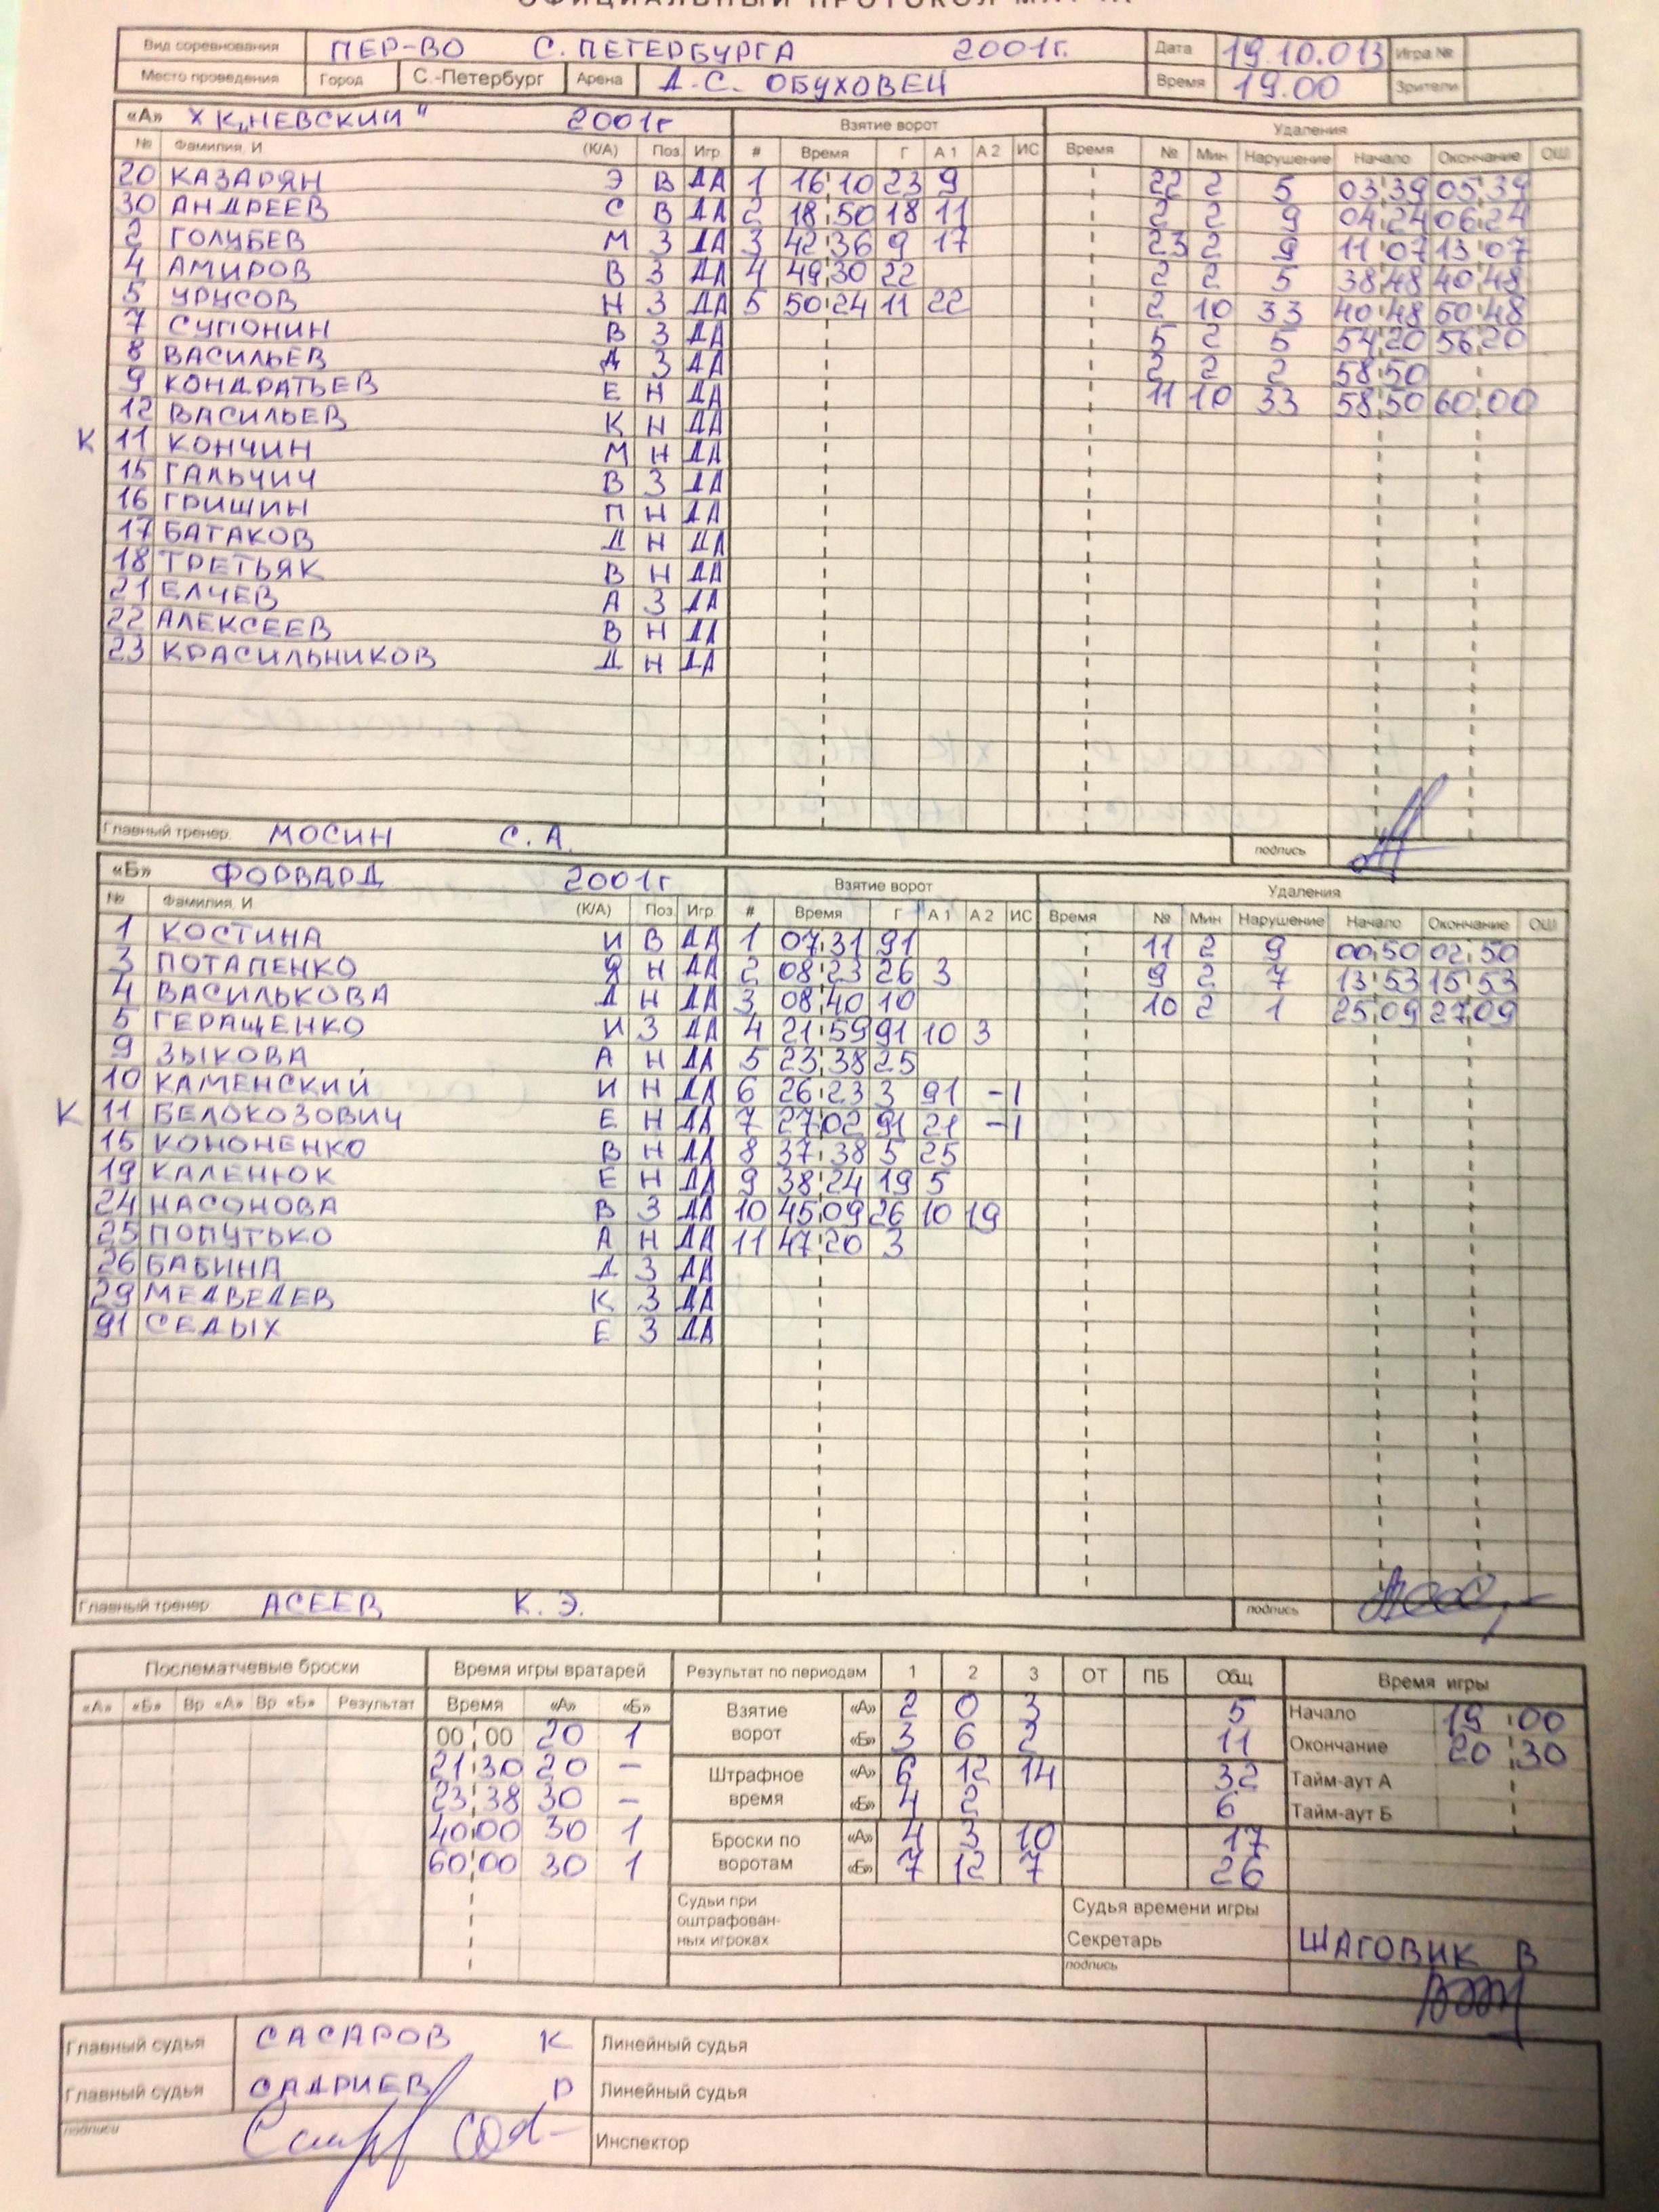 ОФИЦИАЛЬНЫЙ ПРОТОКОЛ МАТЧА
Вид соревнования ПЕР-ВО С. ПЕТЕРБУРГА 2001г. Дата 19.10.013 Игра №
Место проведения Город С.-Петербург Арена Д.С. ОБУХОВЕЦ Время 19.00 Зрители
«А» ХК „НЕВСКИЙ" 2001г Взятие ворот Удаления
№ Фамилия, И (К/А) Поз Игр # Время Г А1 А2 ИС Время № Мин Нарушение Начало Окончание ОШ
20 КАЗАРЯН Э В ДА 1 16:10 23 9 22 2 5 03:39 05:39
30 АНДРЕЕВ С В ДА 2 18:50 18 11 2 2 9 04:24 06:24
2 ГОЛУБЕВ М З ДА 3 42:36 9 17 23 2 9 11:07 13:07
4 АМИРОВ В З ДА 4 49:30 22 2 2 5 38:48 40:48
5 УРУСОВ Н З ДА 5 50:24 11 22 2 10 33 40:48 50:48
7 СУПОНИН В З ДА 5 2 5 54:20 56:20
8 ВАСИЛЬЕВ Д З ДА 2 2 2 58:50
9 КОНДРАТЬЕВ Е Н ДА 11 10 33 58:50 60:00
12 ВАСИЛЬЕВ К Н ДА
К 11 КОНЧИН М Н ДА
15 ГАЛЬЧИЧ В З ДА
16 ГРИШИН П Н ДА
17 БАТАКОВ Д Н ДА
18 ТРЕТЬЯК В Н ДА
21 ЕЛЧЕВ А З ДА
22 АЛЕКСЕЕВ В Н ДА
23 КРАСИЛЬНИКОВ Д Н ДА
Главный тренер: МОСИН С.А. подпись
«Б» ФОРВАРД 2001г Взятие ворот Удаления
№ Фамилия, И (К/А) Поз Игр # Время Г А1 А2 ИС Время № Мин Нарушение Начало Окончание ОШ
1 КОСТИНА И В ДА 1 07:31 91 11 2 9 00:50 02:50
3 ПОТАПЕНКО Я Н ДА 2 08:23 26 3 9 2 7 13:53 15:53
4 ВАСИЛЬКОВА Д Н ДА 3 08:40 10 10 2 1 25:09 27:09
5 ГЕРАЩЕНКО И З ДА 4 21:59 91 10 3
9 ЗЫКОВА А Н ДА 5 23:38 25
10 КАМЕНСКИЙ И Н ДА 6 26:23 3 91 -1
К 11 БЕЛОКОЗОВИЧ Е Н ДА 7 27:02 91 21 -1
15 КОНОНЕНКО В Н ДА 8 37:38 5 25
19 КАЛЕНЮК Е Н ДА 9 38:24 19 5
24 НАСОНОВА В З ДА 10 45:09 26 10 19
25 ПОПУТЬКО А Н ДА 11 47:20 3
26 БАБИНА Д З ДА
29 МЕДВЕДЕВ К З ДА
91 СЕДЫХ Е З ДА
Главный тренер: АСЕЕВ К.Э. подпись
Послематчевые броски Время игры вратарей Результат по периодам 1 2 3 ОТ ПБ Общ Время игры
«А» «Б» Вр «А» Вр «Б» Результат Время «А» «Б» Взятие ворот «А» 2 0 3 5 Начало 19:00
00:00 20 1 «Б» 3 6 2 11 Окончание 20:30
21:30 20 – Штрафное время «А» 6 12 14 32 Тайм-аут А
23:38 30 – «Б» 4 2 6 Тайм-аут Б
40:00 30 1 Броски по воротам «А» 4 3 10 17
60:00 30 1 «Б» 7 12 7 26
Судьи при оштрафован-ных игроках Судья времени игры
Секретарь ШАГОВИК В
подпись
Главный судья САСАРОВ К Линейный судья
Главный судья САДРИЕВ Р Линейный судья
подписи Инспектор